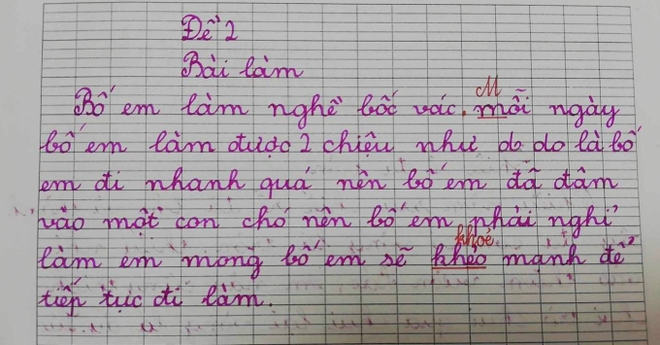 Đề 2
Bài làm
M
Bố em làm nghề bốc vác. mỗi ngày
bố em làm được 2 chiệu như do là bố
em đi nhanh quá nên bố em đã đâm
vào một con chó nên bố em phải nghỉ
khỏe
làm em mong bố em sẽ khẻo mạnh để
tiếp tục đi làm.